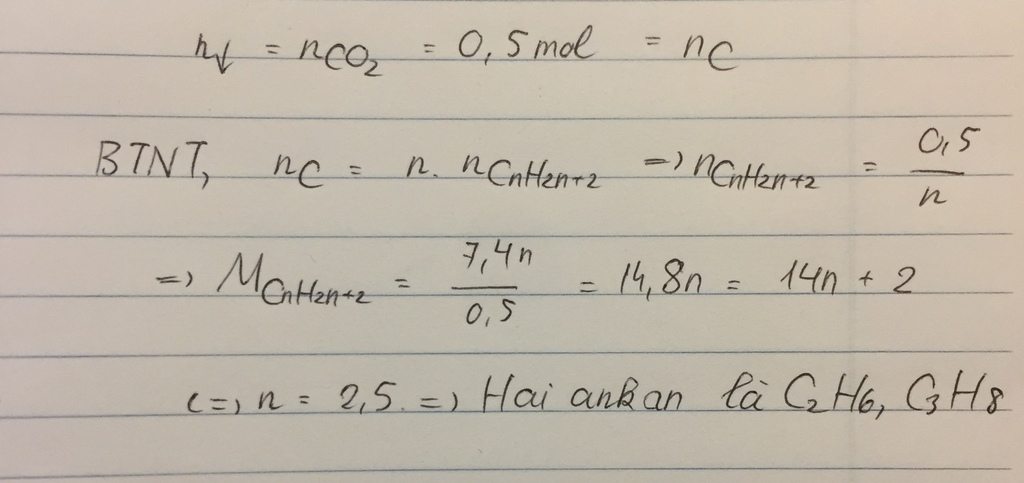 n↓ = nCO₂ = 0,5 mol = nC
BTNT, nC = n. nCnH2n+2 => nCnH2n+2 = 0,5/n
=> MCnH2n+2 = 7,4n/0,5 = 14,8n = 14n + 2
<=> n = 2,5. => Hai ankan là C₂H₆, C₃H₈